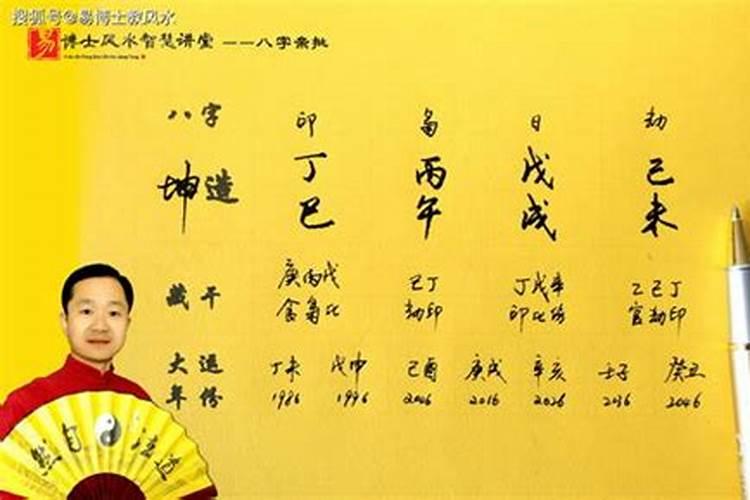 搜狐号@易博士教风水
易 博士风水智慧讲堂 ——八字亲批
八字 印 枭 日 劫
坤造 丁 丙 戊 己
巳 午 戌 未
藏干 庚丙戊 己丁 丁戊辛 乙己丁
食枭比 劫印 印比伤 官劫印
大运 丁未 戊申 己酉 庚戌 辛亥 壬子 癸丑
年份 1986 1996 2006 2016 2026 2036 2046
道法自然